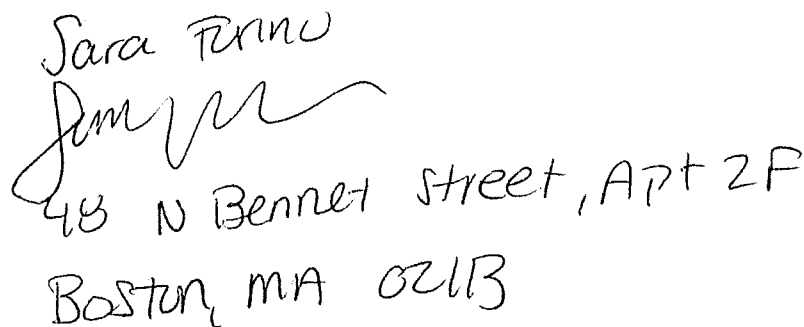 Sara
48 N Bennet Street, Apt 2F
Boston, MA 02113